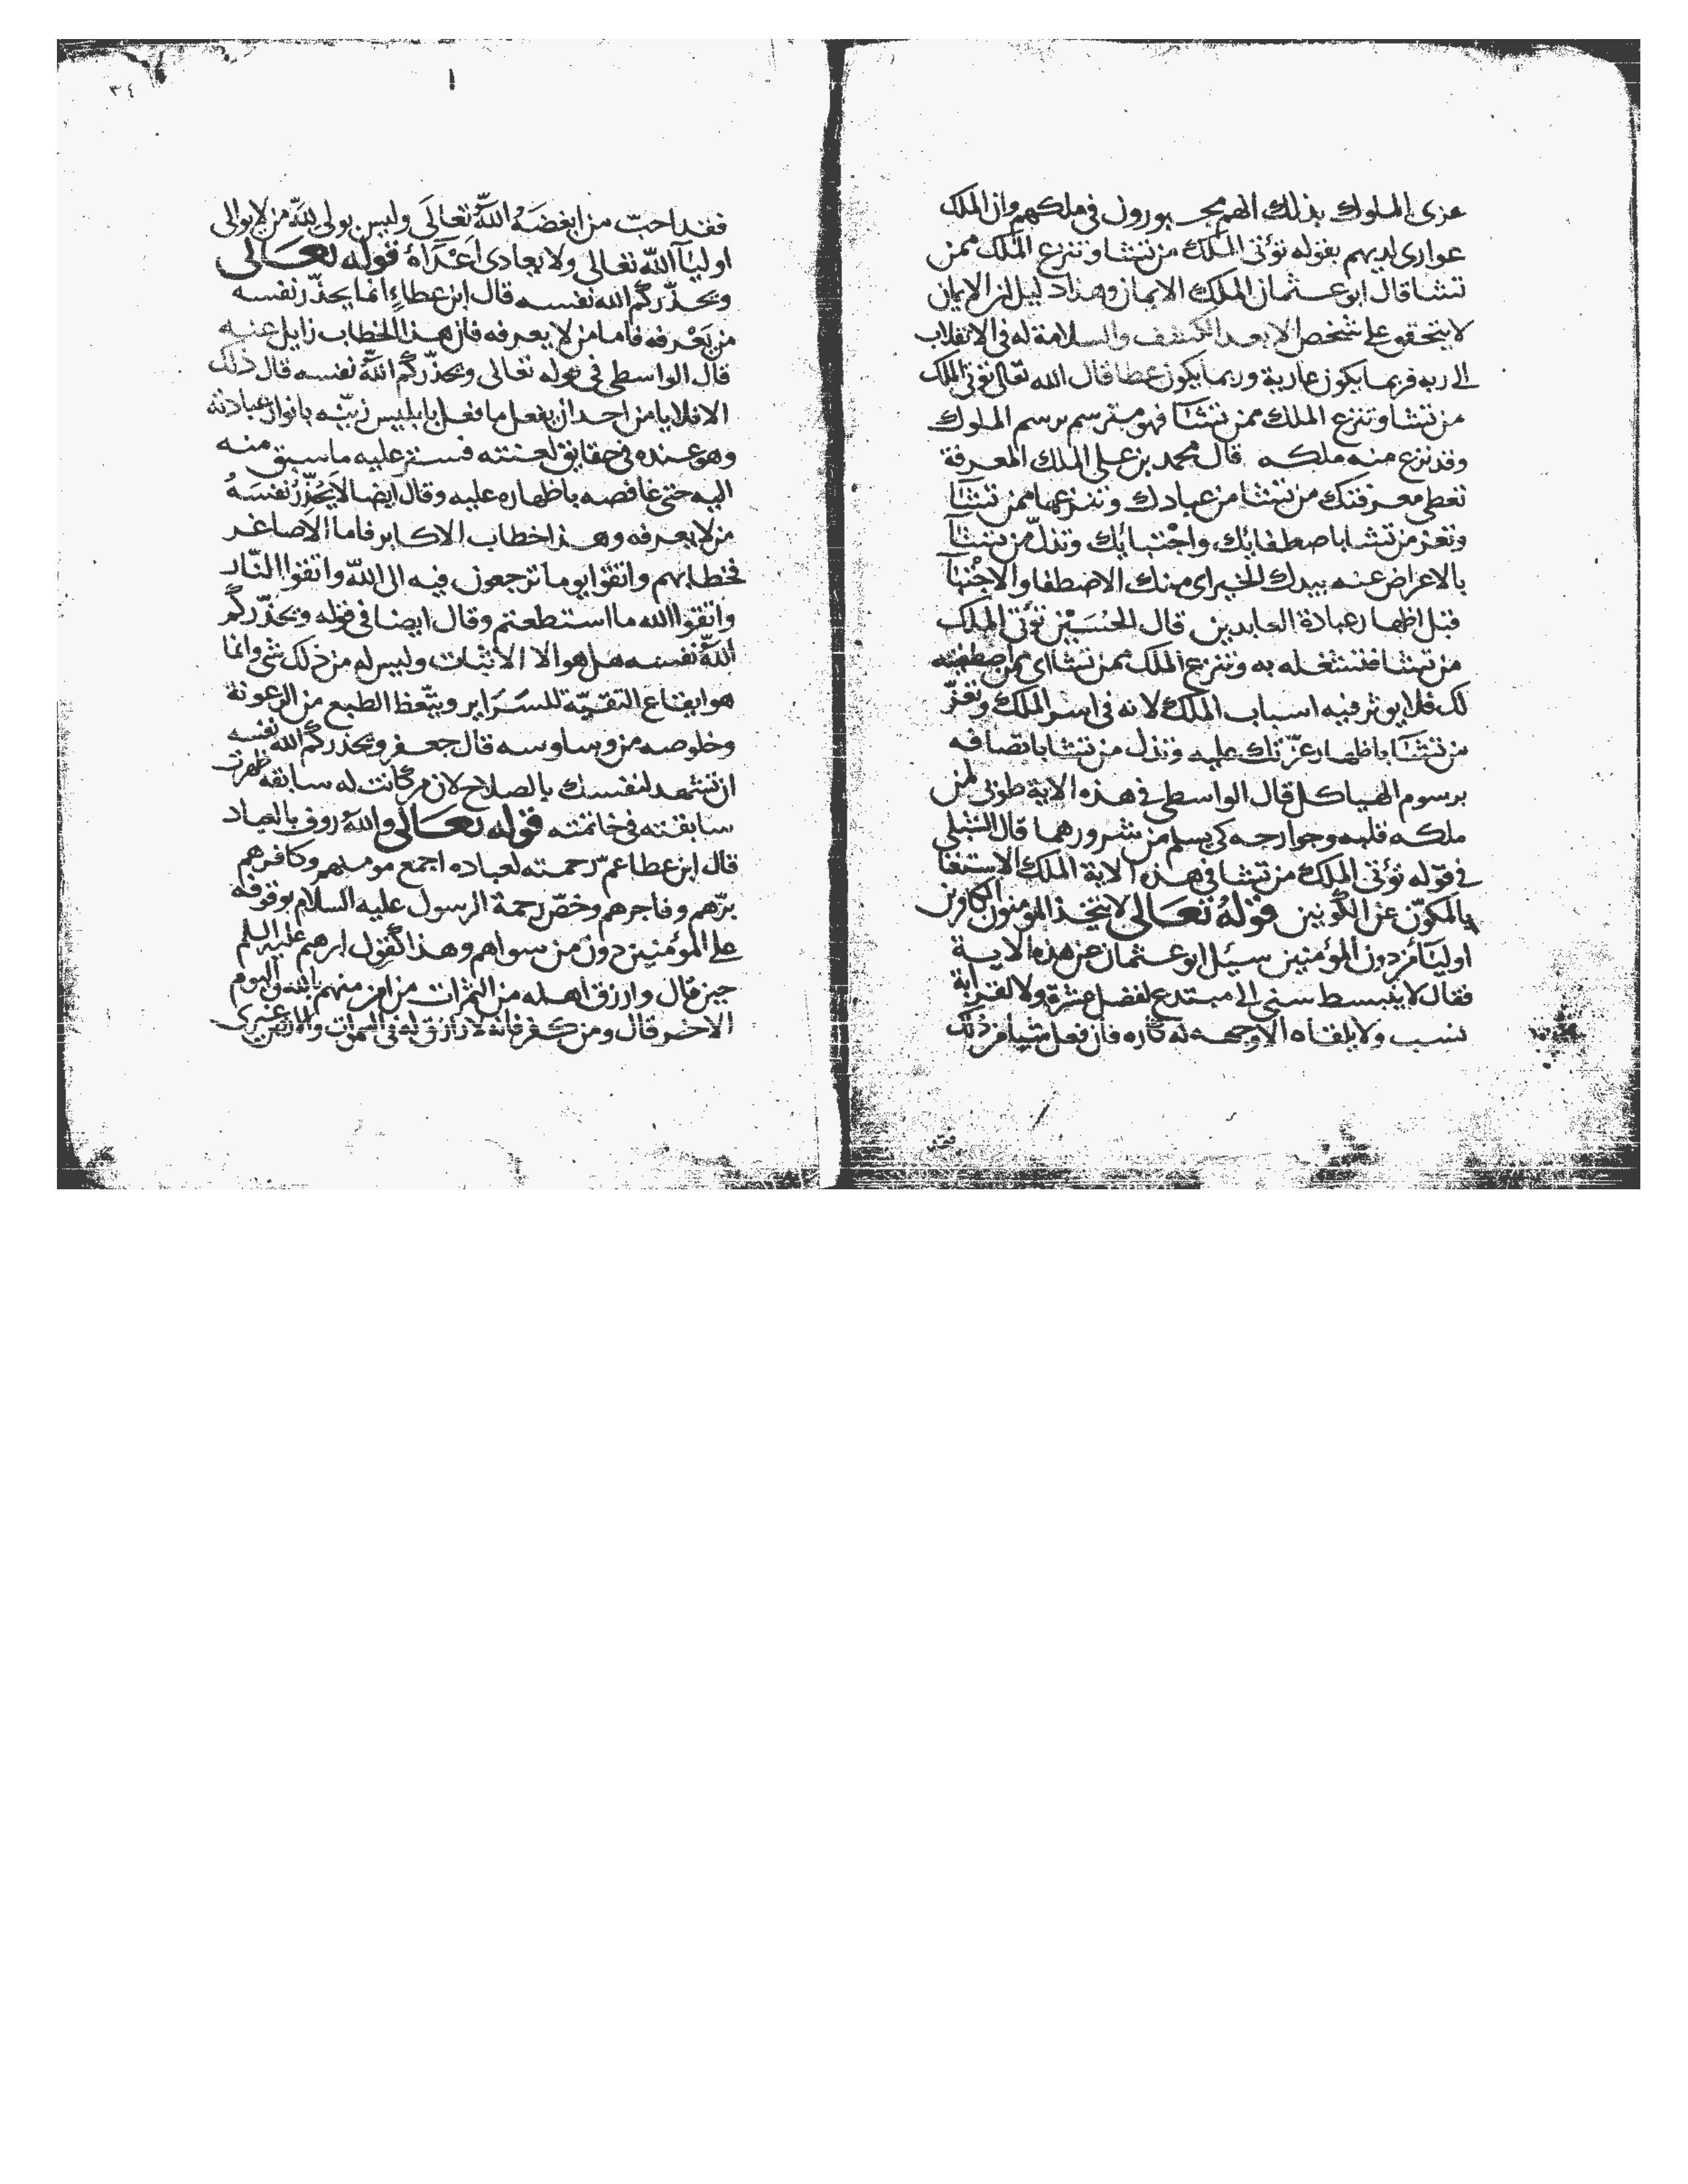 عزى الملوك بذلك انهم مجبورون في ملكهم وان الملك
عوارى لديهم بقوله توتى الملك من تشا وتنزع الملك ممن
تشا قال ابو عثمان الملك الايمان وهذا دليل ان الايمان
لا يتحقق على شخص الا بعد الكشف والسلامة له في الانقلاب
الى ربه فربما يكون عارية وربما يكون عطا قال الله تعالى توتى الملك
من تشا وتنزع الملك ممن تشا فهو مترسم برسم الملوك
وقد نزع منه ملكه قال محمد بن على الملك المعرفة
تعطى معرفتك من تشا من عبادك وتنزعها ممن تشا
وتعز من تشا باصطفايك واجتبايك وتذل من تشا
بالاعراض عنه بيدك الخير اى منك الاصطفا والاجتبا
قبل اظهار عبادة العابدين قال الحسين توتى الملك
من تشا فتشغله به وتنزع الملك ممن تشا اى ممن اصطفيته
لك فلا يوثر فيه اسباب الملك لانه في اسر الملك وتعز
من تشا باظهار عزتك عليه وتذل من تشا باتصافه
برسوم الهياكل قال الواسطي في هذه الاية طوبى لمن
ملكه قلبه وجوارحه كى يسلم من شرورهما قال الشبلي
في قوله توتى الملك من تشا في هذه الاية الملك الاستغنا
بالمكون عن الكونين قوله تعالى لا يتخذ المومنون الكافرين
اوليا من دون المؤمنين سيل ابو عثمان عن هذه الاية
فقال لا ينبسط سني الى مبتدع لفضل عشرة ولا لقرابة
نسب ولا يلقاه الا وجهه له كاره فان فعل شيا من ذلك
فقد
٣٤
فقد احب من ابغضه الله تعالى وليس بولى لله من لا يوالى
اوليآ الله تعالى ولا يعادى اعداه قوله تعالى
ويحذركم الله نفسه قال ابن عطاء انما يحذر نفسه
من يعرفه فاما من لا يعرفه فان هذا الخطاب زايل عنه
قال الواسطى في قوله تعالى ويحذركم الله نفسه قال ذلك
الا فلا يامن احد ان يفعل ما فعل بابليس زينه بانوار عبادته
وهو عنده في حقايق لعنته فستر عليه ما سبق منه
اليه حتى غافصه باظهاره عليه وقال ايضا لا يحذر نفسه
من لا يعرفه وهذا خطاب الاكابر فاما الاصاغر
فخطابهم واتقوا يوما ترجعون فيه الى الله واتقوا النار
واتقوا الله ما استطعتم وقال ايضا في قوله ويحذركم
الله نفسه هل هو الا الاثبات وليس له من ذلك شي وانما
هو ايقاع التقية للسراير ويتعظ الطبع من الرعونة
وخلوصه من وساوسه قال جعفر ويحذركم الله نفسه
ان تشهد لنفسك بالصلاح لان من كانت له سابقة ظهرت
سابقته في خاتمته قوله تعالى والله روف بالعباد
قال ابن عطا عم رحمته لعباده اجمع مومنهم وكافرهم
برهم وفاجرهم وخص رحمة الرسول عليه السلام بوقوفه
على المؤمنين دون من سواهم وهذا كقول ابرهيم عليه السلم
حين قال وارزق اهله من الثمرات من امن منهم بالله واليوم
الاخر قال ومن كفر فانه لا رازق له في السموات والارض غيرى